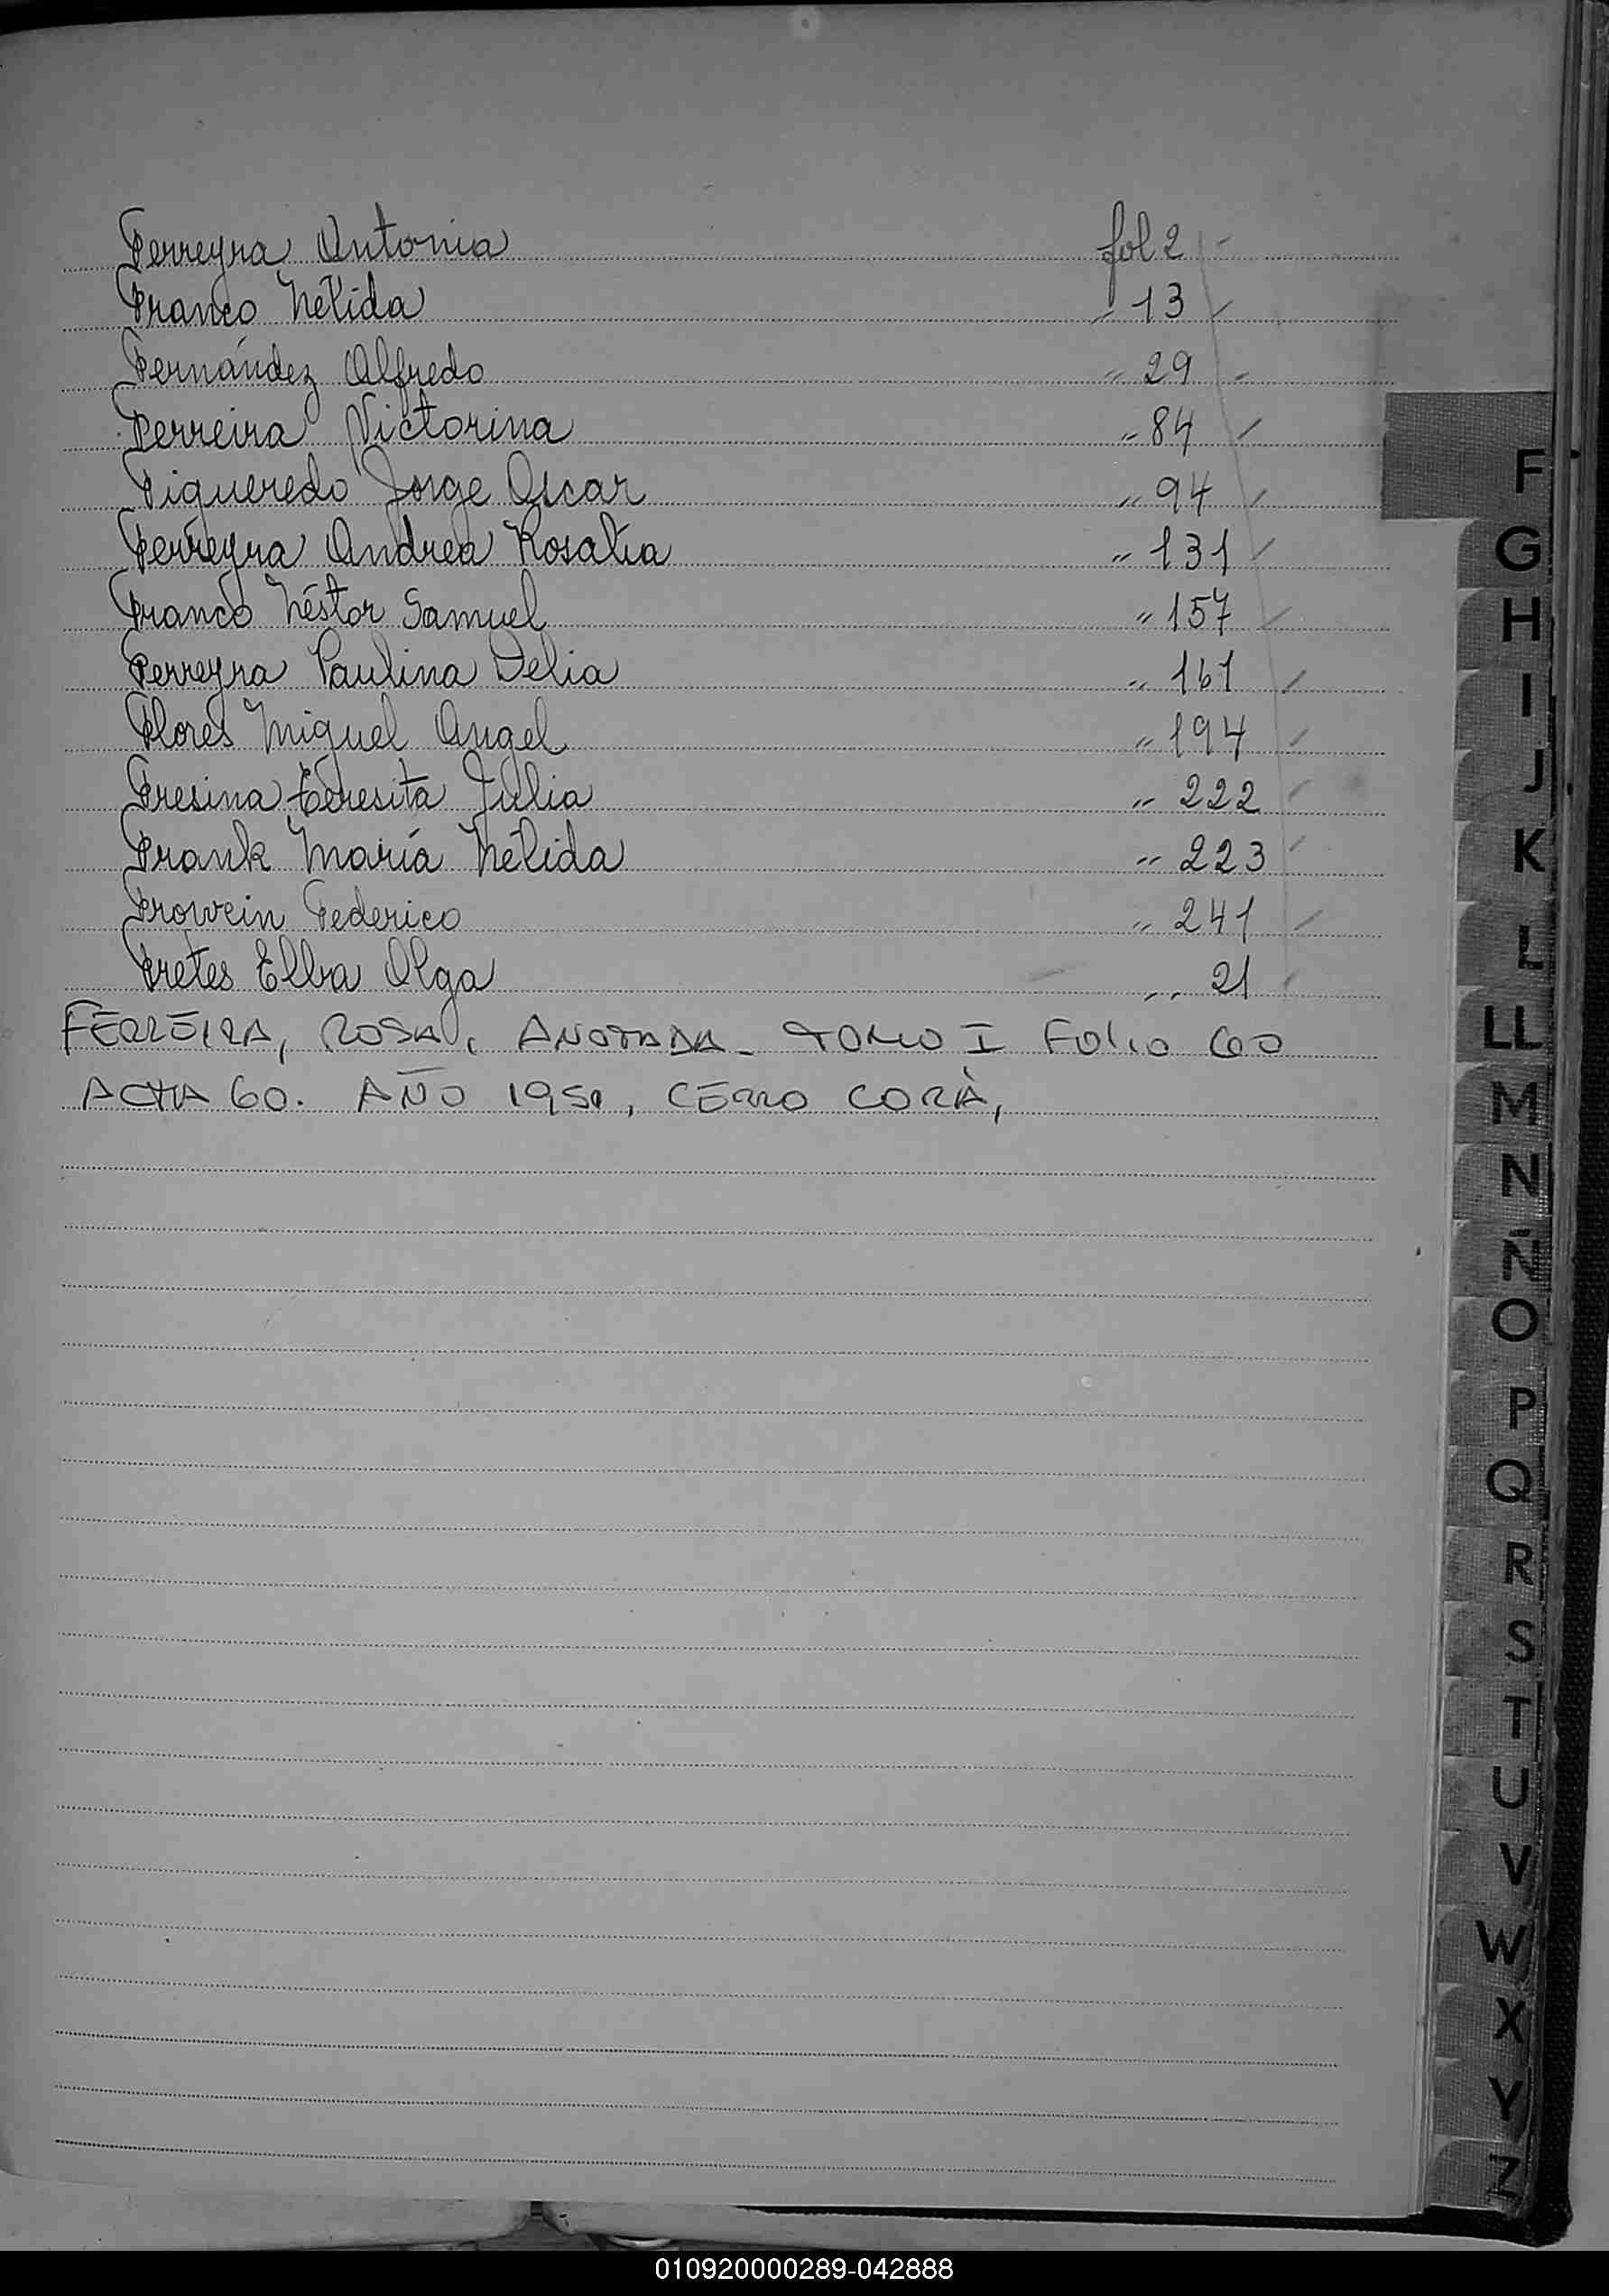 Ferreyra Antonia fol 2
Franco Nélida " 13
Fernández Alfredo " 29
Ferreira Victorina " 84
Figueredo Jorge Oscar " 94
Ferreyra Andrea Rosalía " 131
Franco Néstor Samuel " 157
Ferreyra Paulina Delia " 161
Flores Miguel Angel " 194
Fresina Teresita Julia " 222
Frank María Nélida " 223
Frowein Federico " 241
Fretes Elba Olga " 21
FERREIRA, ROSA, ANOTADA - TOMO I FOLIO 60
ACTA 60. AÑO 1950, CERRO CORÁ,
F
G
H
I
J
K
L
LL
M
N
Ñ
O
P
Q
R
S
T
U
V
W
X
Y
Z
010920000289-042888